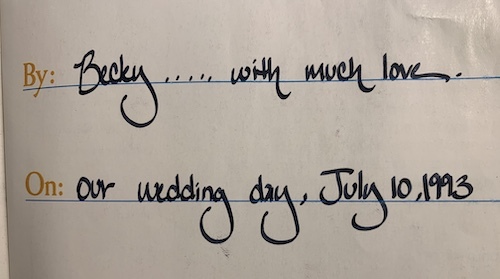 By: Becky ..... with much love.
On: our wedding day, July 10, 1993